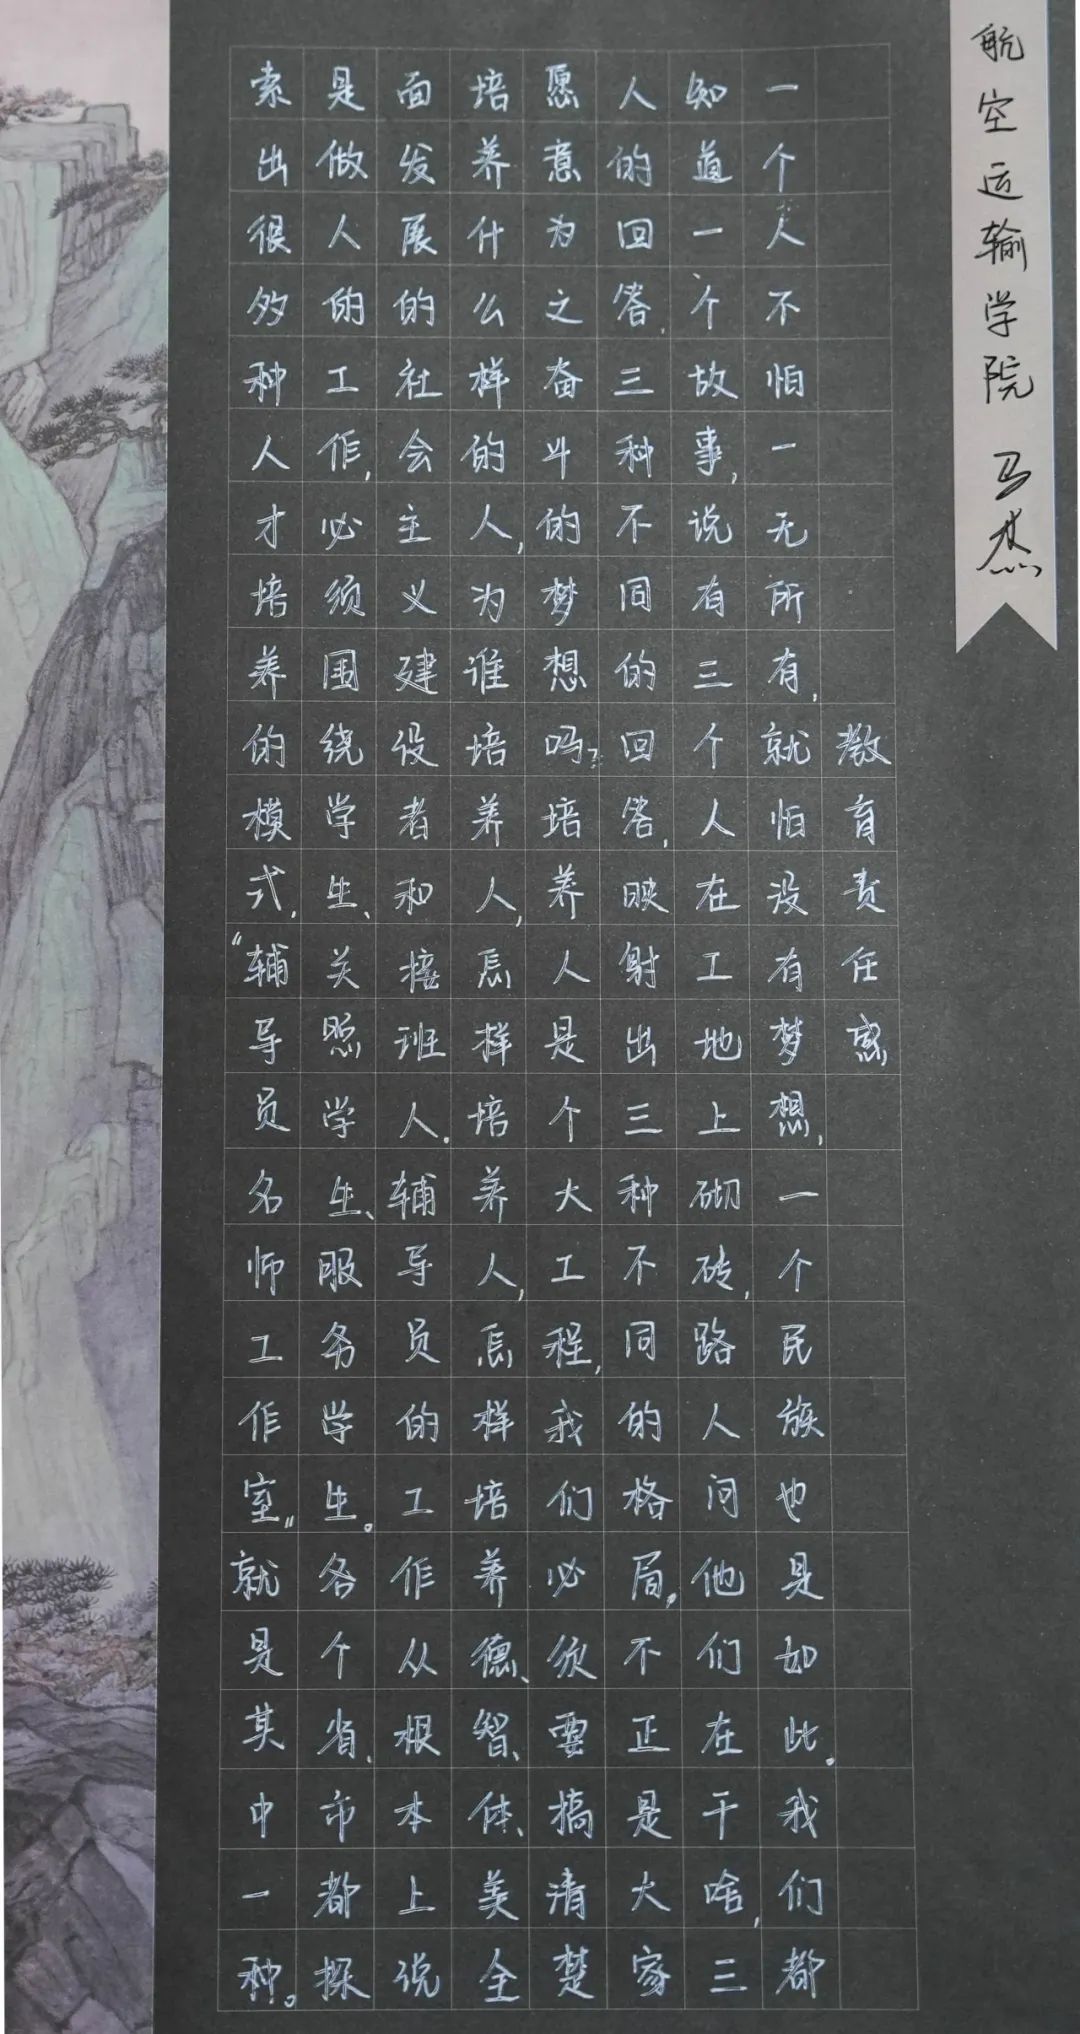 航空运输学院 马杰
教育责任感
一个人不怕一无所有,就怕没有梦想,一个民族也是如此。我们都
知道一个故事,说有三个人在工地上砌砖,路人问他们在干啥,三
人的回答.三种不同的回答,映射出三种不同的格局,不正是大家
愿意为之奋斗的梦想吗?培养人是个大工程,我们必须要搞清楚
培养什么样的人,为谁培养人,怎样培养人,怎样培养德、智、体、美全
面发展的社会主义建设者和接班人.辅导员的工作从根本上说
是做人的工作,必须围绕学生、关照学生、服务学生。各个省、市都探
索出很多种人才培养的模式,“辅导员名师工作室”就是其中一种。